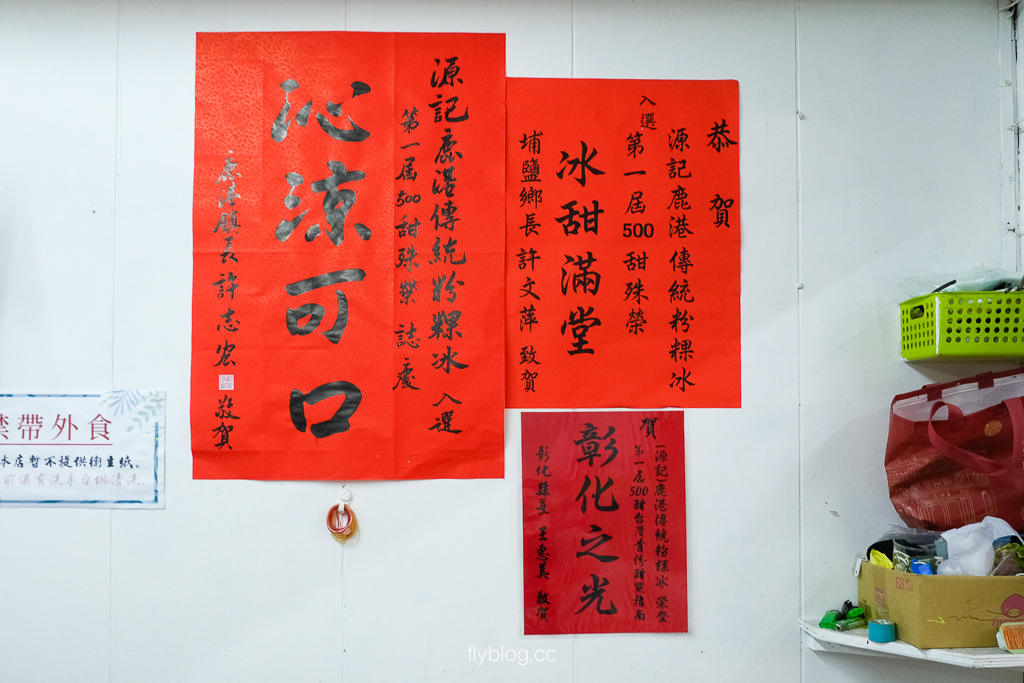 源記鹿港傳統粉粿冰 入選
第一屆500甜殊榮 誌慶
沁涼可口
鹿港鎮長許志宏 敬賀
恭賀
源記鹿港傳統粉粿冰
入選第一屆500甜殊榮
冰甜滿堂
埔鹽鄉長 許文萍 致賀
賀
(源記)鹿港傳統粉粿冰 榮登
第一屆500甜台灣首份甜點指南
彰化之光
彰化縣長 王惠美 敬賀
禁帶外食
本店暫不提供衛生紙。
前備有洗手台供清洗。
flyblog.cc